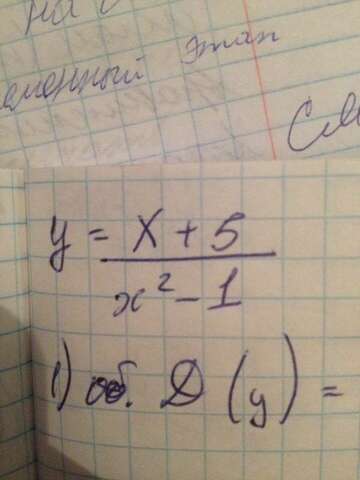 на
еменный этап
См
y = x + 5
x² - 1
1) об. D (y) =